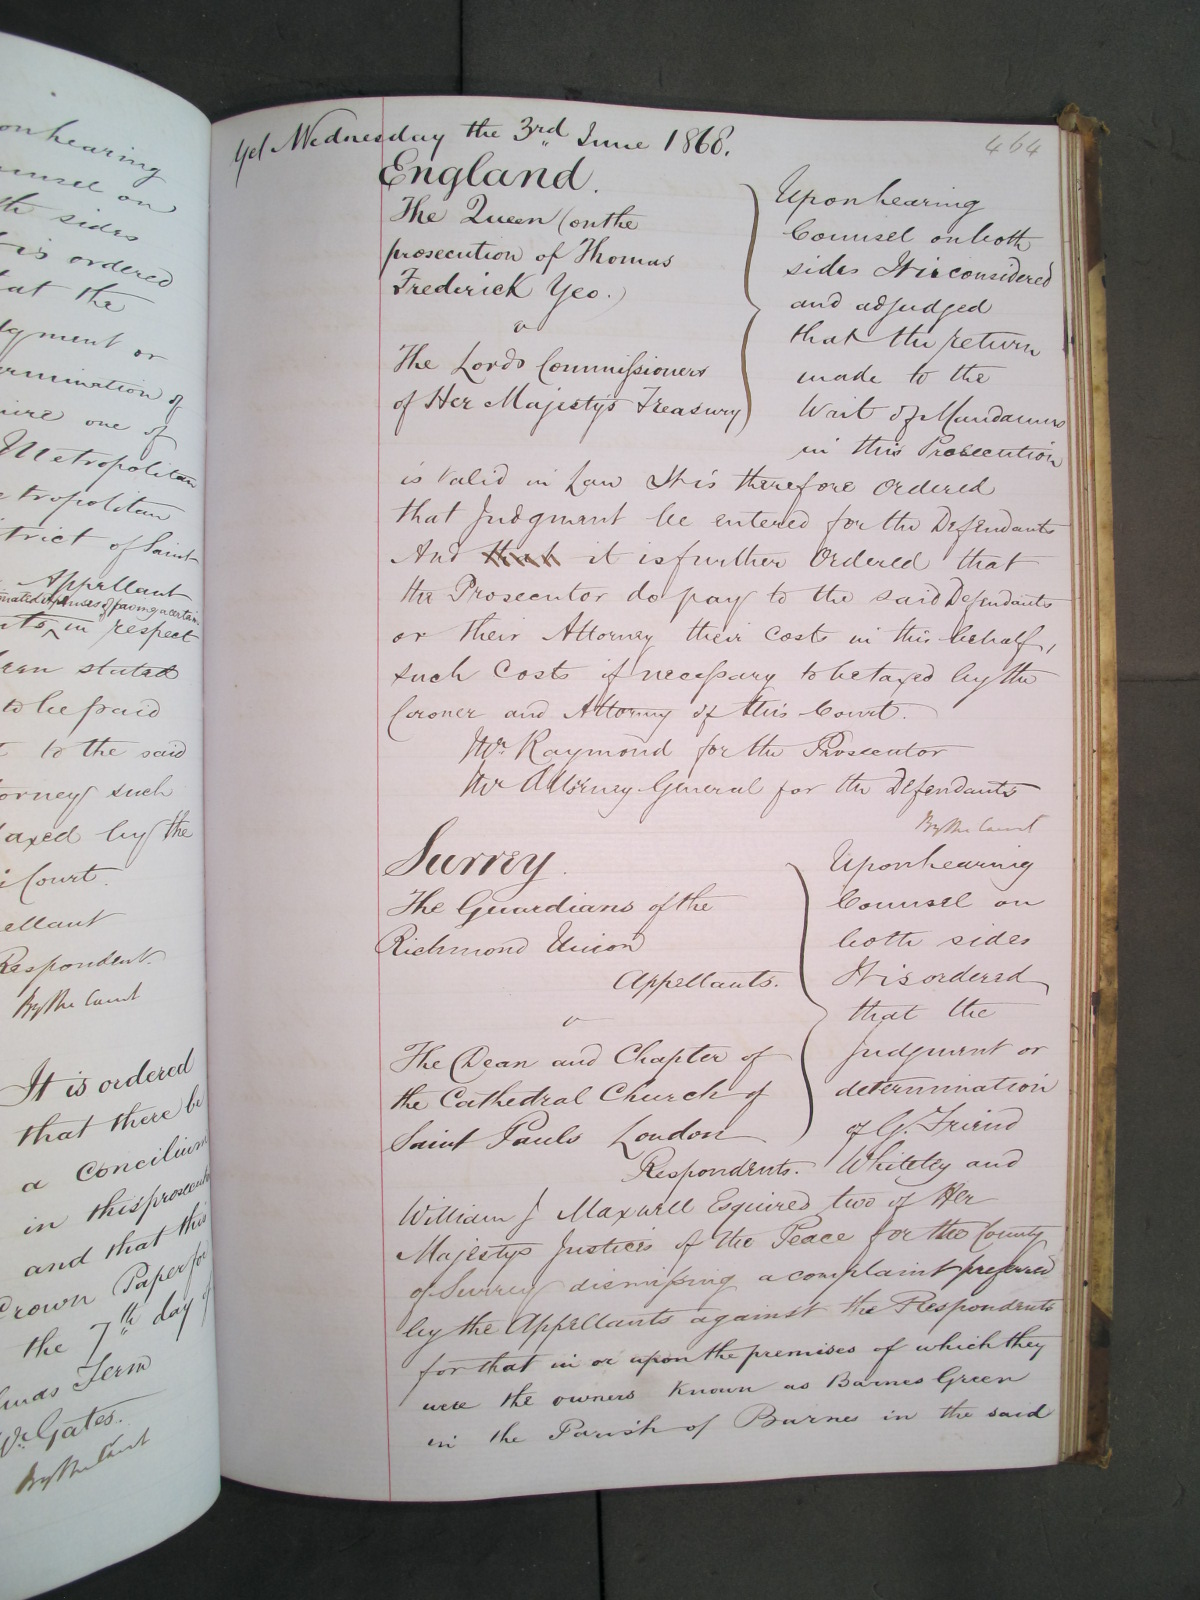 onhearing
ounsel on
th sides
t is ordered
at the
dgment or
ermination of
uire one of
Metropolitan
etropolitan
trict of Saint
Appellant
mated expenses of paving a certain
nts in respect
been stated
to be paid
t to the said
torney such
taxed by the
i Court.
ellant
Respondent.
By the Court
It is ordered
that there be
a Concilium
in this prosecution
and that this
Crown Paper for
the 7th day of
Term
Mr. Gates.
By the Court
464
Yet Wednesday the 3rd June 1868.
England.
The Queen (on the
prosecution of Thomas
Frederick Yeo.)
v
The Lords Commissioners
of Her Majesty's Treasury
Upon hearing
Counsel on both
sides It is considered
and adjudged
that the return
made to the
Writ of Mandamus
in this Prosecution
is valid in Law It is therefore Ordered
that Judgment be entered for the Defendants
And that it is further Ordered that
the Prosecutor do pay to the said Defendants
or their Attorney their Costs in this behalf,
such Costs if necessary to be taxed by the
Coroner and Attorney of this Court.
Mr. Raymond for the Prosecutor
Mr Attorney General for the Defendants
By the Court
Surrey.
The Guardians of the
Richmond Union
Appellants.
v
The Dean and Chapter of
the Cathedral Church of
Saint Pauls London
Respondents.
Upon hearing
Counsel on
both sides
It is ordered
that the
Judgment or
determination
of G. Friend
Whiteley and
William J Maxwell Esquires two of Her
Majestys Justices of the Peace for the County
of Surrey dismissing a complaint preferred
by the Appellants against the Respondents
for that in or upon the premises of which they
were the owners Known as Barnes Green
in the Parish of Barnes in the said